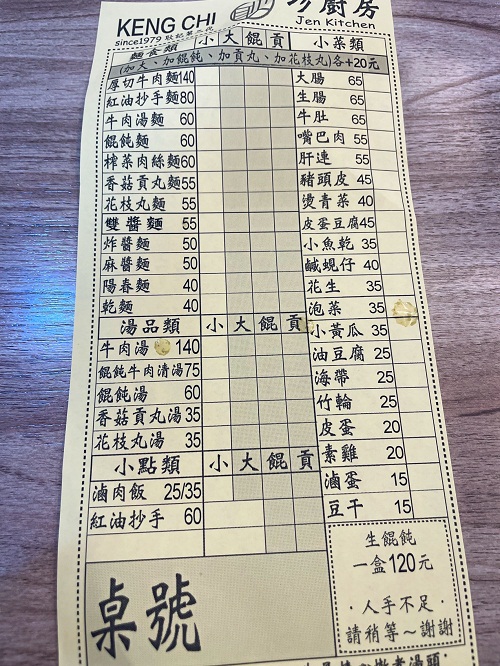 KENG CHI
since1979
廚房
Jen Kitchen
麵食類 小 大 餛 貢
(加大、加餛飩、加貢丸、加花枝丸)各+20元
厚切牛肉麵140
紅油抄手麵80
牛肉湯麵 60
餛飩麵 60
榨菜肉絲麵60
香菇貢丸麵55
花枝丸麵 55
雙醬麵 55
炸醬麵 50
麻醬麵 50
陽春麵 40
乾麵 40
湯品類 小 大 餛 貢
牛肉湯 140
餛飩牛肉清湯75
餛飩湯 60
香菇貢丸湯35
花枝丸湯 35
小點類 小 大 餛 貢
滷肉飯 25/35
紅油抄手 60
桌號
小菜類
大腸 65
生腸 65
牛肚 65
嘴巴肉 55
肝連 55
豬頭皮 45
燙青菜 40
皮蛋豆腐45
小魚乾 35
鹹蜆仔 40
花生 35
泡菜 35
小黃瓜 35
油豆腐 25
海帶 25
竹輪 25
皮蛋 20
素雞 20
滷蛋 15
豆干 15
生餛飩
一盒120元
·人手不足·
請稍等~謝謝